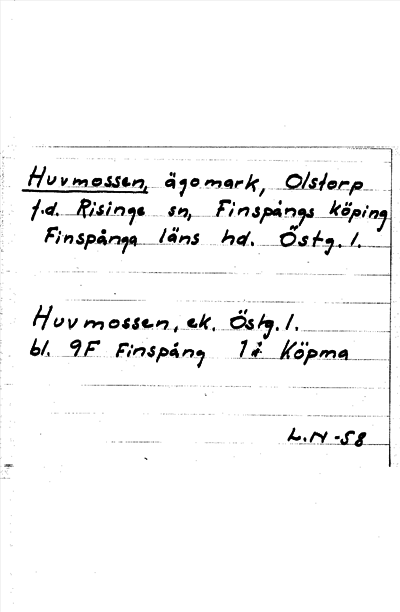 Huvmossen, ägomark, Olstorp
f.d. Risinge sn, Finspångs köping
Finspånga läns hd. Östg. l.
Huvmossen, ek. Östg. l.
bl. 9F Finspång 1i Köpma
L.N -58